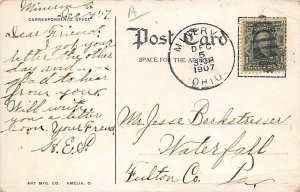 Minerva O.
Dec 5/07
A
CORRESPONDENCE SPACE
Post Card
SPACE FOR THE
Dear Friend:
I got your
letter the other
day and was
glad to hear
from you.
Will write
you a letter
soon. Your Friend
H.E.S.
MINERVA
DEC
5
1907
OHIO.
Mr. Jesse Berkstresser
Waterfall
Fulton Co. Pa
ART MFG. CO. AMELIA, O.